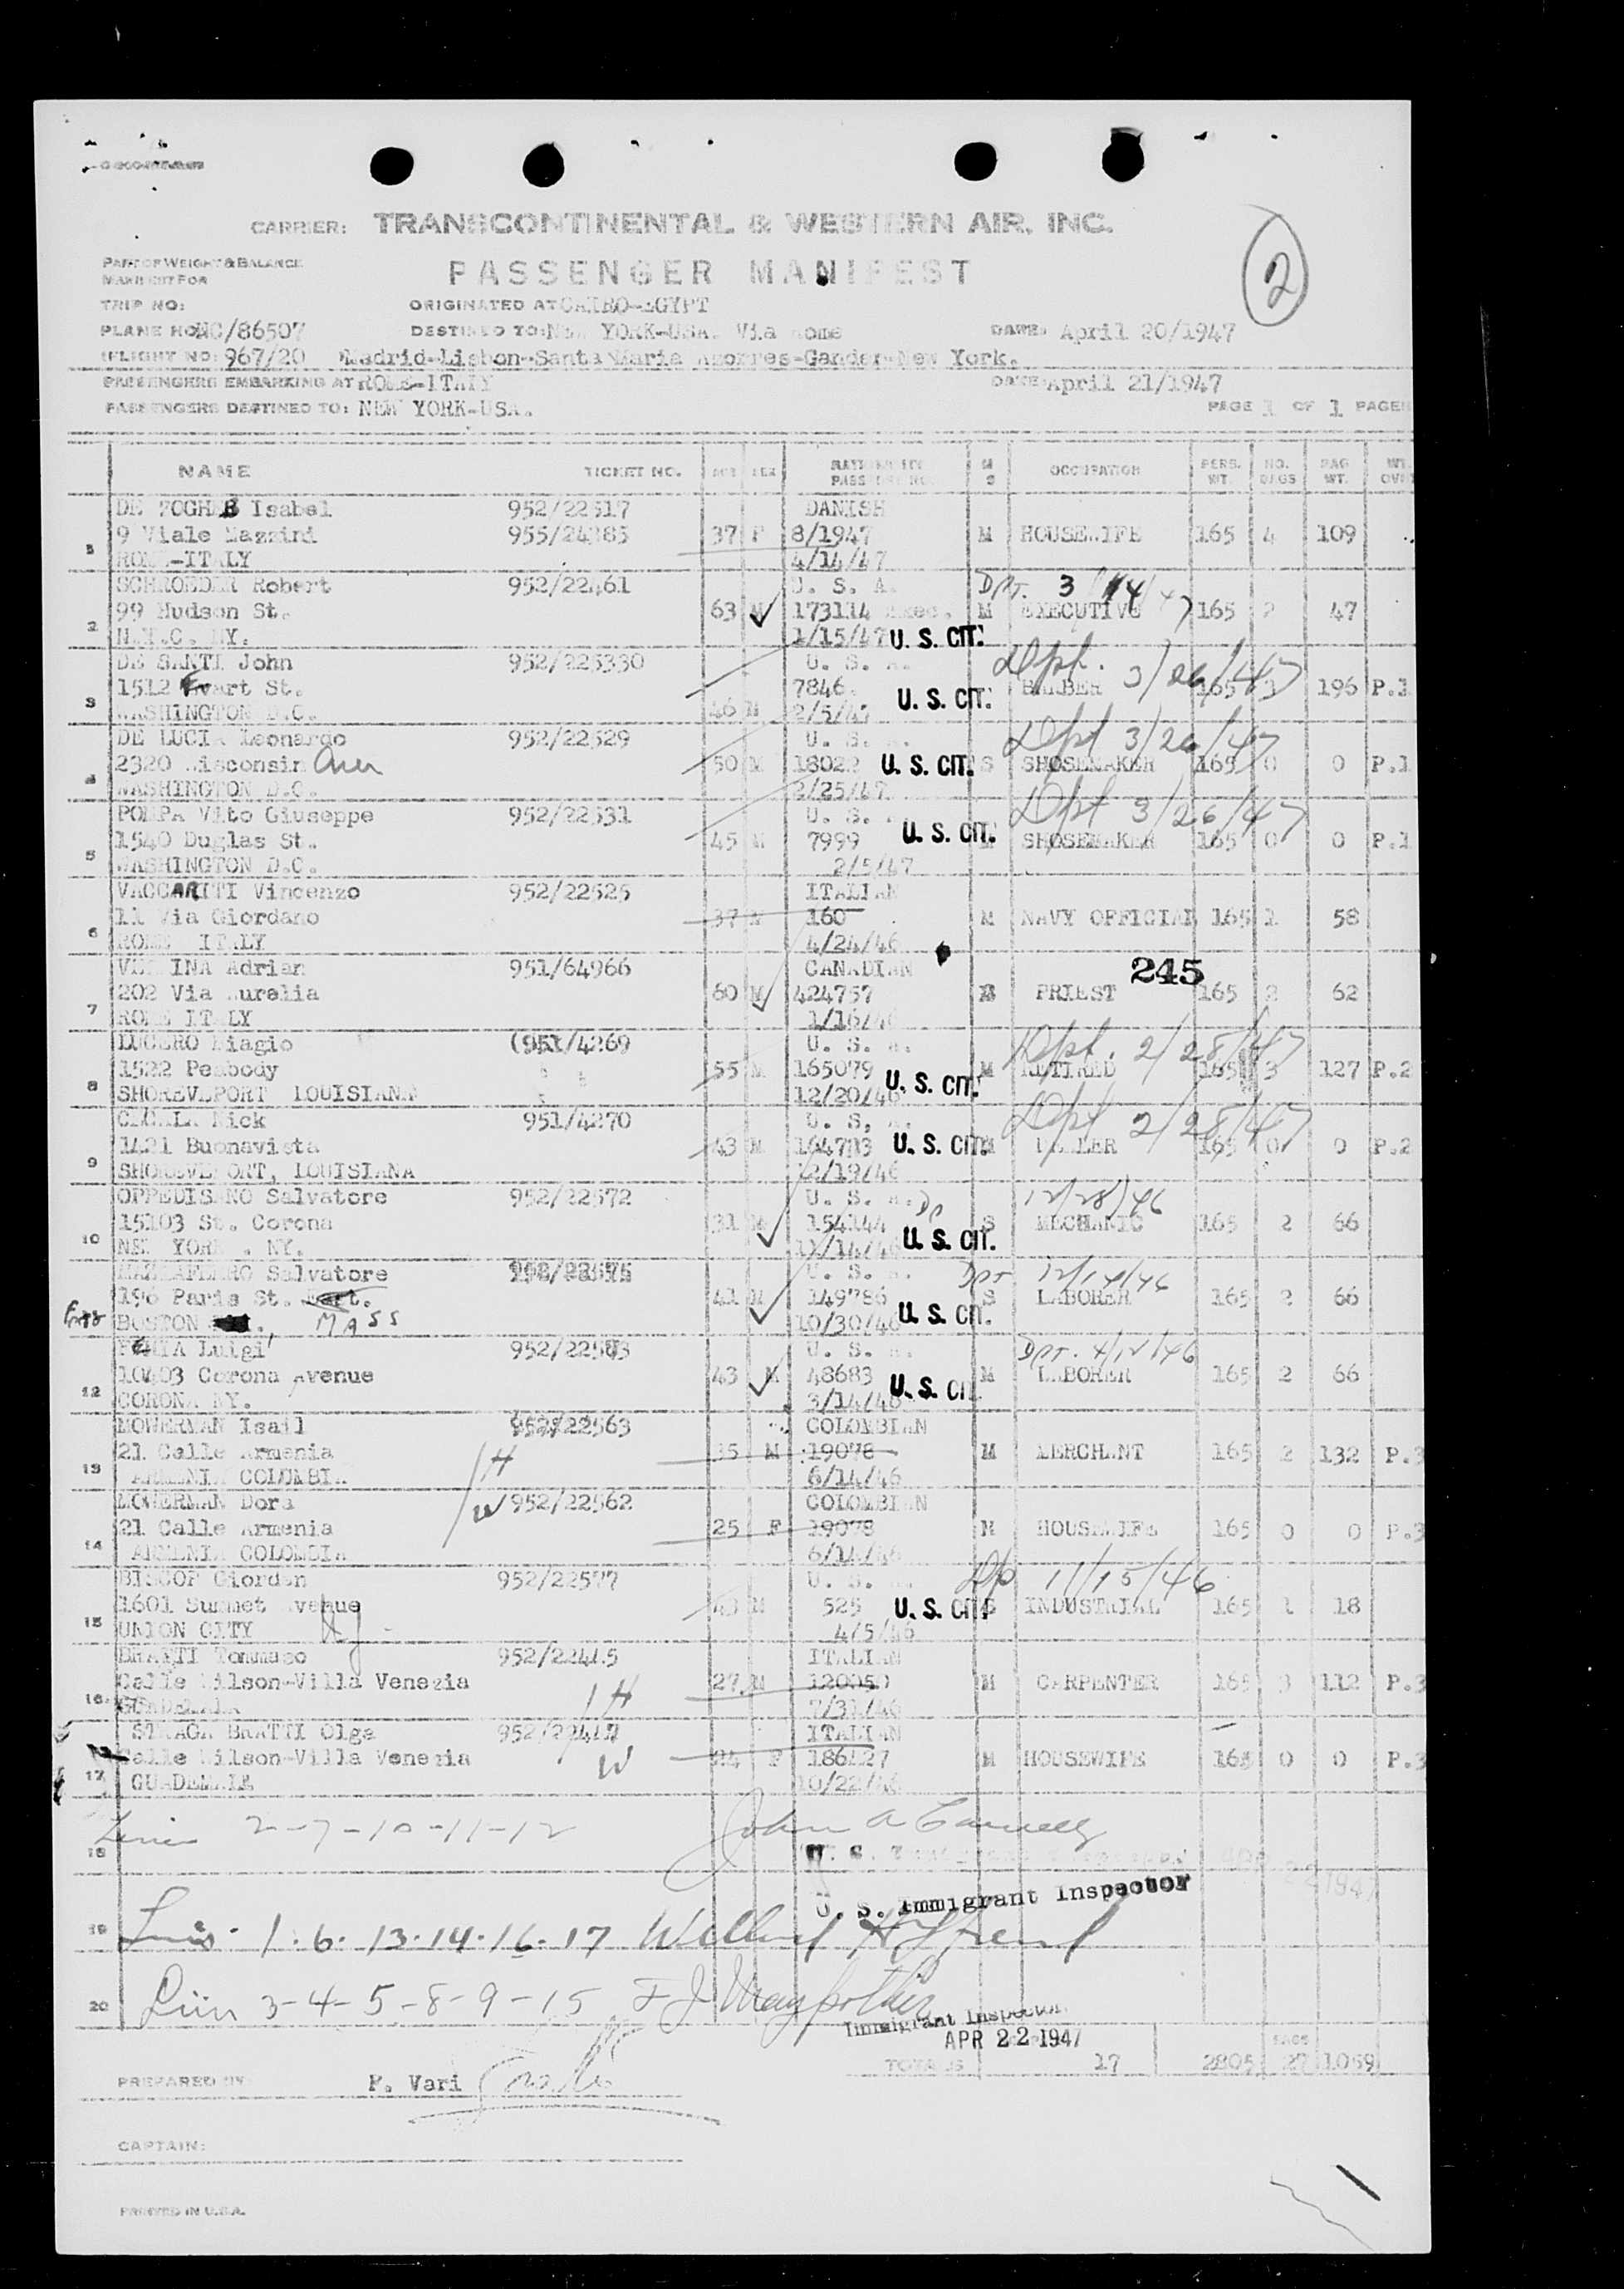 CARRIER: TRANSCONTINENTAL & WESTERN AIR, INC.
PART OF WEIGHT & BALANCE
MANIFEST FOR
PASSENGER MANIFEST
2
TRIP NO:
ORIGINATED AT CAIRO-EGYPT
PLANE NO: NC/86507
DESTINED TO: NEW YORK-USA. Via Rome
DATE: April 20/1947
FLIGHT NO: 967/20 Madrid-Lisbon-Santa Maria Azorres-Gander-New York.
PASSENGERS EMBARKING AT ROME-ITALY
DATE: April 21/1947
PASSENGERS DESTINED TO: NEW YORK-USA.
PAGE 1 OF 1 PAGES
NAME TICKET NO. AGE SEX NATIONALITY PASSPORT NO. M S OCCUPATION PERS. WT. NO. BAGS BAG WT. WT. OVER
Isabel 952/22517 DANISH
9 Viale Mazzini 955/24385 37 F 8/1947 M HOUSEWIFE 165 4 109
ROME-ITALY 4/14/47
SCHROEDER Robert 952/22461 U. S. A. Dpt. 3/14/47
2 99 Hudson St. 63 M 173114 M EXECUTIVE 165 2 47
N.Y.C. NY. 1/15/47 U. S. CIT.
DE SANTI John 952/225330 U. S. A. Dpt. 3/26/47
3 1512 St. 7846 U. S. CIT. BARBER 165 3 196 P.1
WASHINGTON D.C. 46 M 2/5/47
DE LUCIA Leonardo 952/22529 U. S. A. Dpt 3/26/47
4 2320 Wisconsin Ave 50 M 18022 U. S. CIT. S SHOSEMAKER 165 0 0 P.1
WASHINGTON D.C. 2/25/47
POMPA Vito Giuseppe 952/22531 U. S. A. Dpt 3/26/47
5 1540 Duglas St. 45 M 7999 U. S. CIT. SHOSEMAKER 165 0 0 P.1
WASHINGTON D.C. 2/5/47
VACCARITI Vincenzo 952/22525 ITALIAN
6 11 Via Giordano 37 M 160 M NAVY OFFICIAL 165 1 58
ROME ITALY 4/24/46
Adrian 951/64966 CANADIAN 245
7 202 Via Aurelia 60 M 424757 PRIEST 165 2 62
ROME ITALY 1/16/46
LUCERO Biagio (951/4269 U. S. A. Dpt. 2/28/47
8 1522 Peabody 55 M 165079 U. S. CIT. M RETIRED 165 3 127 P.2
SHOREVEPORT LOUISIANA 12/20/46
Nick 951/4270 U. S. A. Dpt 2/28/47
9 1421 Buonavista 43 M U. S. CIT. M 165 0 0 P.2
SHOREVEPORT, LOUISIANA 12/19/46
OPPEDISANO Salvatore 952/22572 U. S. A. Dp 12/28/46
10 15103 St. Corona 31 M 154144 S MECHANIC 165 2 66
NEW YORK. NY. 11/14/46 U. S. CIT.
Salvatore U. S. A. Dpt 12/14/46
196 Paris St. 41 M 149786 S LABORER 165 2 66
BOSTON MASS 10/30/46 U. S. CIT.
Luigi U. S. A. Dpt. 4/12/46
12 10403 Corona Avenue 43 M 48683 U. S. CIT. M LABORER 165 2 66
CORONA NY. 3/14/46
MOWERMAN Isail 952/22563 COLOMBIAN
13 21 Calle Armenia H 35 M 19078 M MERCHANT 165 2 132 P.3
ARMENIA COLOMBIA 6/14/46
MOWERMAN Dora W 952/22562 COLOMBIAN
21 Calle Armenia 25 F 19078 M HOUSEWIFE 165 0 0 P.3
14 ARMENIA COLOMBIA 6/14/46
Giordan 952/22577 U. S. A. Dp 11/15/46
15 1601 Summet Avenue 43 M 525 U. S. CIT. S INDUSTRIAL 165 1 18
UNION CITY NJ 4/5/46
Tommaso 952/22415 ITALIAN
16 Calle Wilson-Villa Venezia H 27 M 120050 M CARPENTER 165 3 112 P.3
7/31/46
STRAGA BRATTI Olga ITALIAN
17 Calle Wilson-Villa Venezia W 24 F 186127 M HOUSEWIFE 165 0 0 P.3
10/22/46
18 2-7-10-11-12
U. S. Immigrant Inspector
19 1.6.13.14.16.17
20 3-4-5-8-9-15
Immigrant Inspector
APR 22 1947
TOTALS 17 2805 27 1059
PREPARED BY P. Vari
CAPTAIN:
PRINTED IN U.S.A.